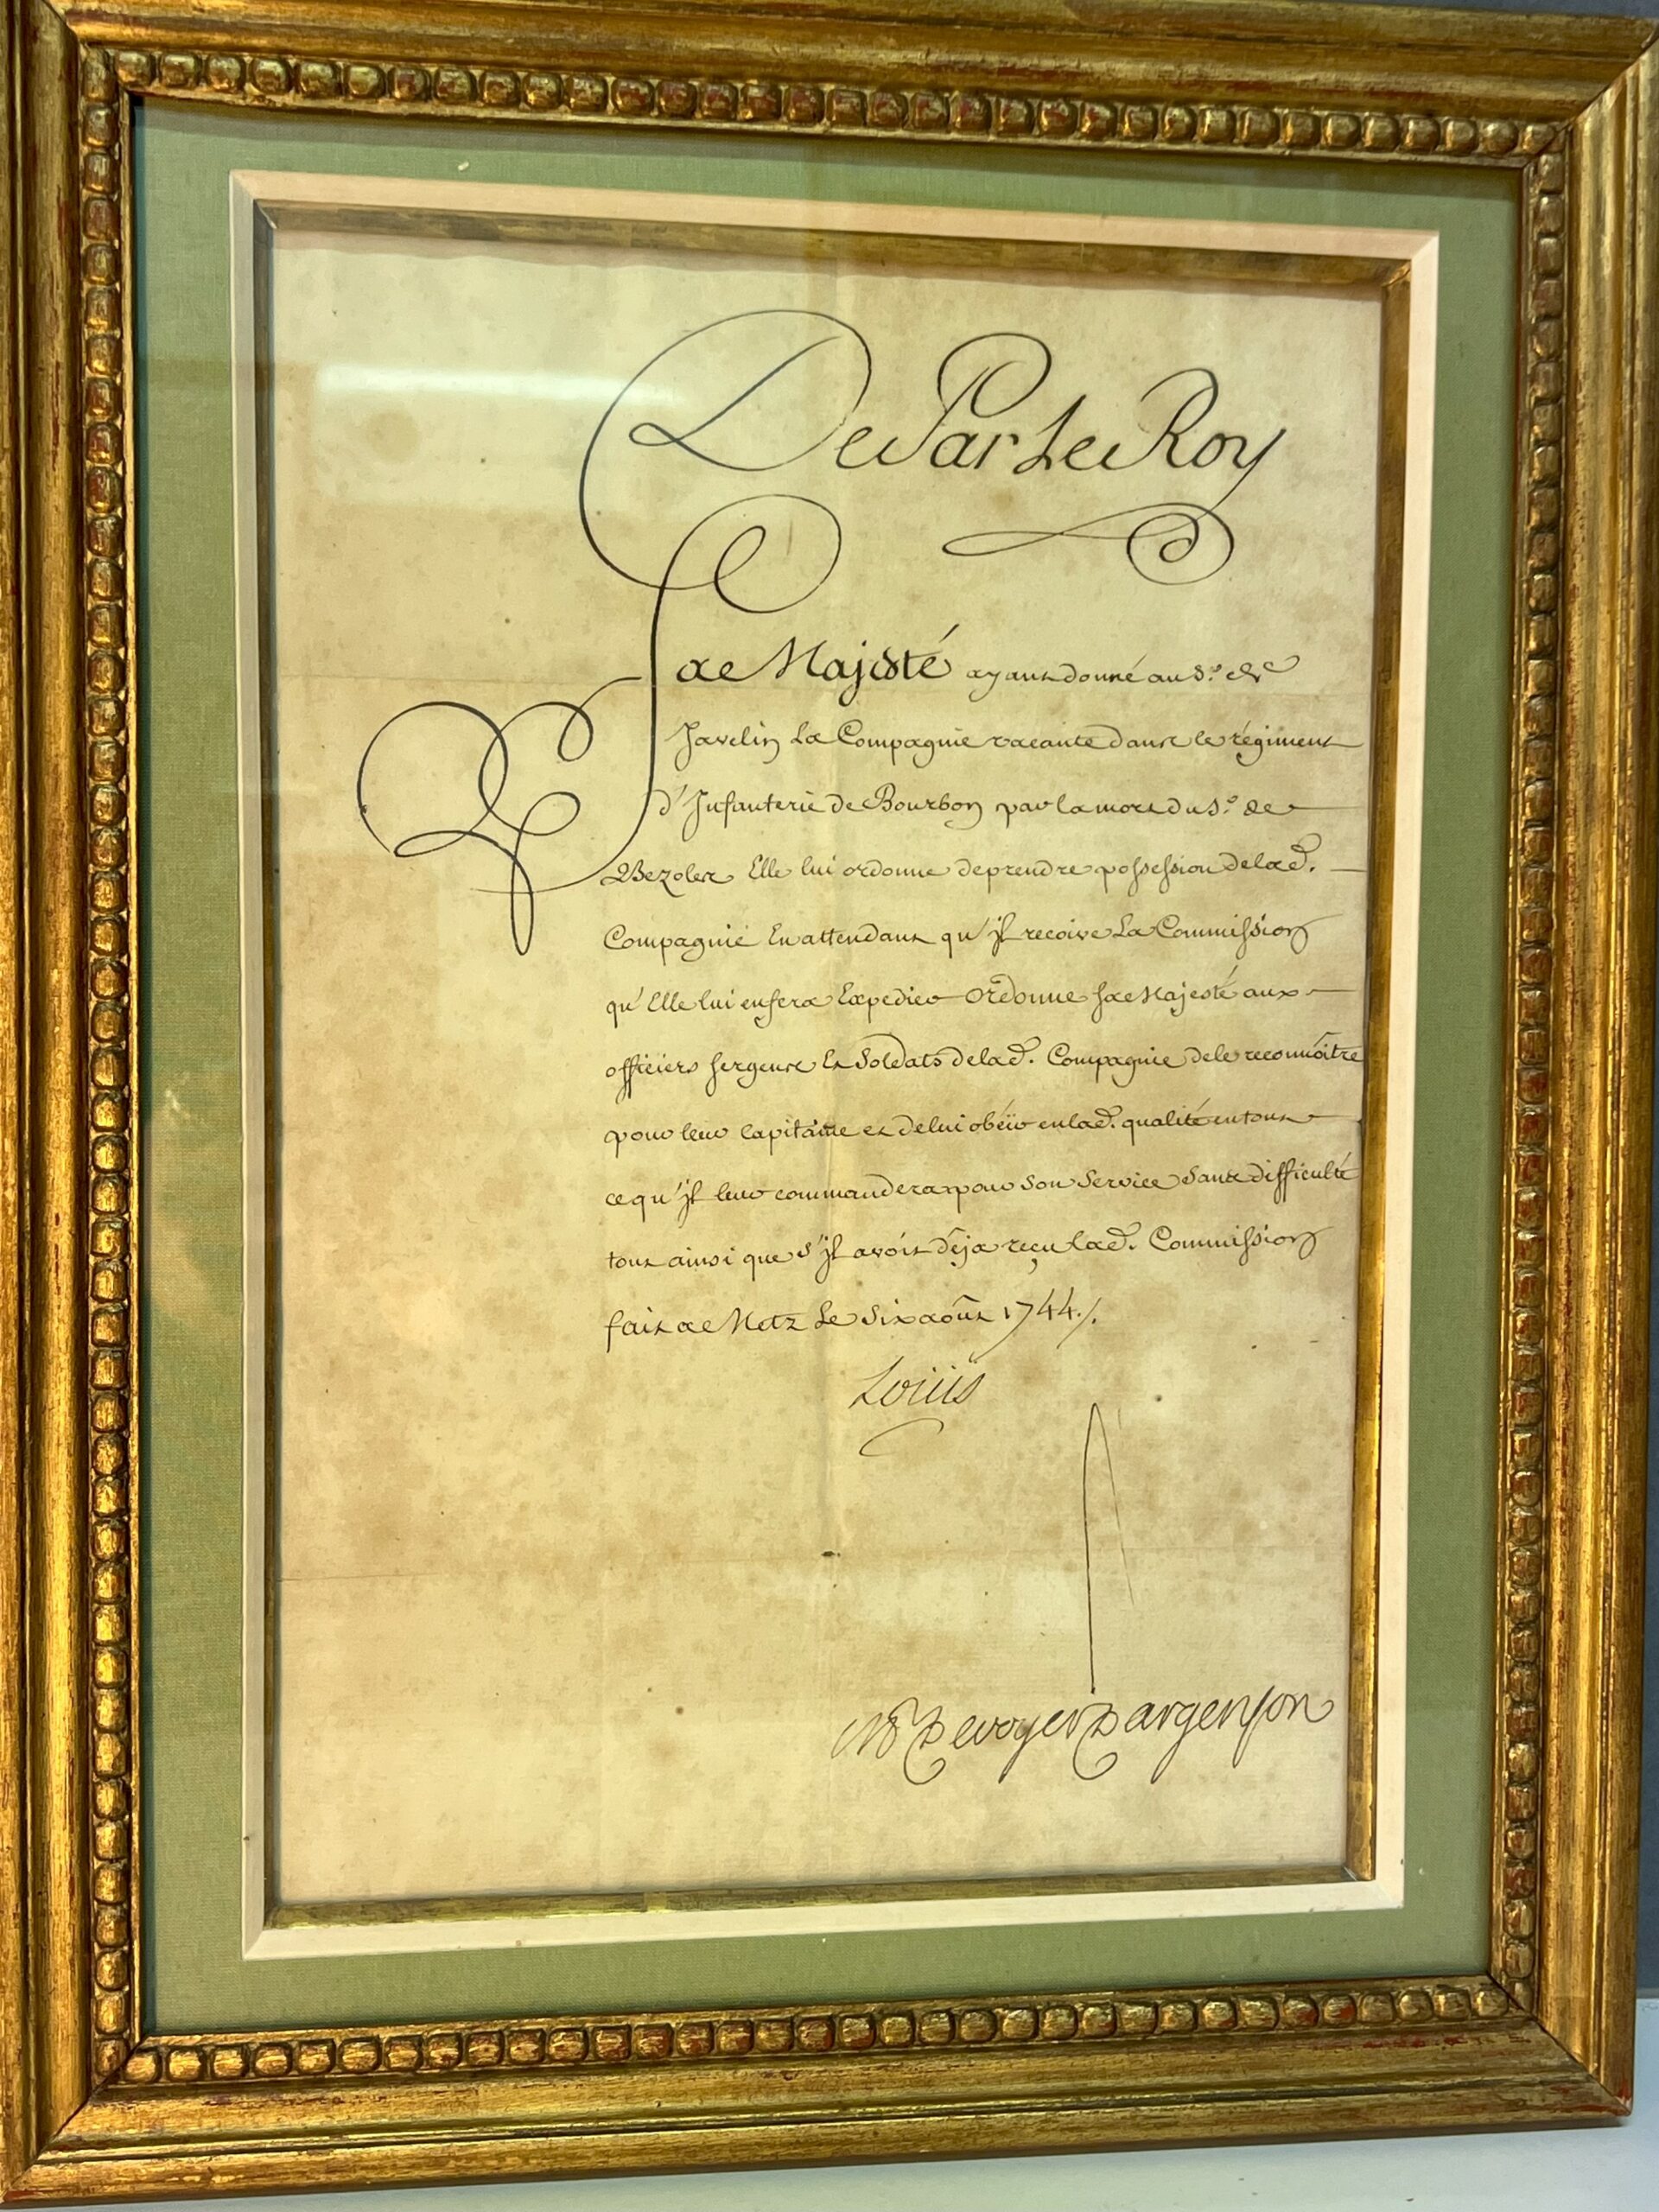 De Par Le Roy
Sa Majesté ayant donné au Sr. de
Javelin La Compagnie vacante dans le régiment
d'Infanterie de Bourbon par la mort du Sr. de
Bezoles Elle lui ordonne de prendre possession de lad.
Compagnie En attendant qu'jl recoive La Commission
qu'Elle lui en fera Expedier Ordonne sa Majesté aux
officiers sergens Et Soldats de lad. Compagnie de le reconnoître
pour leur Capitaine et de lui obéïr en lad. qualité en tout
ce qu'jl leur commandera pour Son Service Sans difficulté
tout ainsi que s'jl avoit déja reçu lad. Commission
fait a Metz Le Six août 1744./.
Louis
M P De voyer D argenson